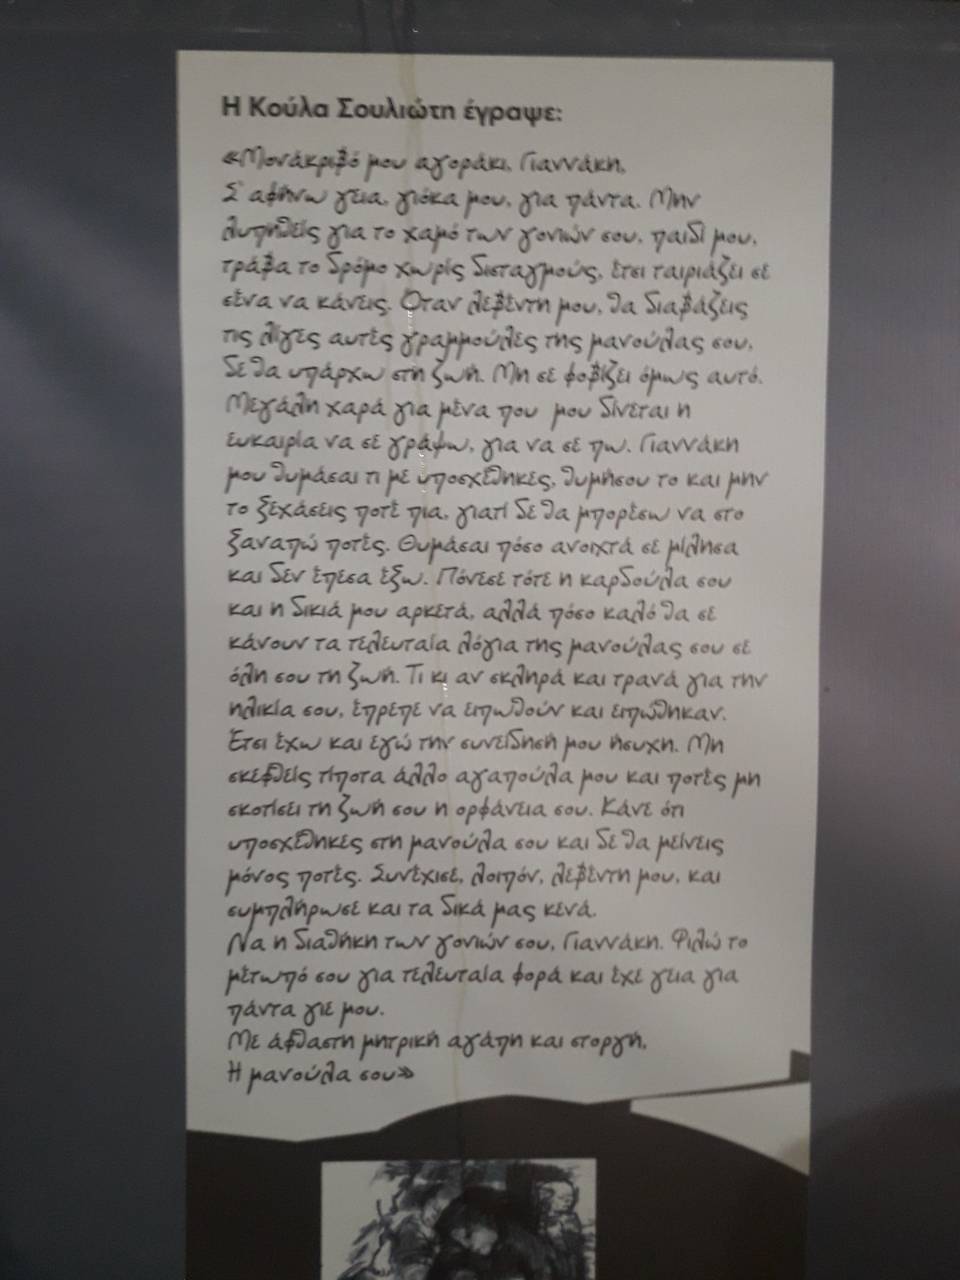 Η Κούλα Σουλιώτη έγραψε:
«Μονάκριβό μου αγοράκι, Γιαννάκη,
Σ' αφήνω γεια, γιόκα μου, για πάντα. Μην
λυπηθείς για το χαμό των γονιών σου, παιδί μου,
τράβα το δρόμο χωρίς δισταγμούς, έτσι ταιριάζει σε
σένα να κάνεις. Όταν λεβέντη μου, θα διαβάζεις
τις λίγες αυτές γραμμούλες της μανούλας σου,
δε θα υπάρχω στη ζωή. Μη σε φοβίζει όμως αυτό.
Μεγάλη χαρά για μένα που μου δίνεται η
ευκαιρία να σε γράψω, για να σε πω. Γιαννάκη
μου θυμάσαι τι με υποσχέθηκες, θυμήσου το και μην
το ξεχάσεις ποτέ πια, γιατί δε θα μπορέσω να στο
ξαναπώ ποτές. Θυμάσαι πόσο ανοιχτά σε μίλησα
και δεν έπεσα έξω. Πόνεσε τότε η καρδούλα σου
και η δικιά μου αρκετά, αλλά πόσο καλό θα σε
κάνουν τα τελευταία λόγια της μανούλας σου σε
όλη σου τη ζωή. Τι κι αν σκληρά και τρανά για την
ηλικία σου, έπρεπε να ειπωθούν και ειπώθηκαν.
Έτσι έχω και εγώ την συνείδησή μου ήσυχη. Μη
σκεφθείς τίποτα άλλο αγαπούλα μου και ποτές μη
σκοτίσει τη ζωή σου η ορφάνεια σου. Κάνε ότι
υποσχέθηκες στη μανούλα σου και δε θα μείνεις
μόνος ποτές. Συνέχισε, λοιπόν, λεβέντη μου, και
συμπλήρωσε και τα δικά μας κενά.
Να η διαθήκη των γονιών σου, Γιαννάκη. Φιλώ το
μέτωπό σου για τελευταία φορά και έχε γεια για
πάντα γιε μου.
Με άφθαστη μητρική αγάπη και στοργή,
Η μανούλα σου»